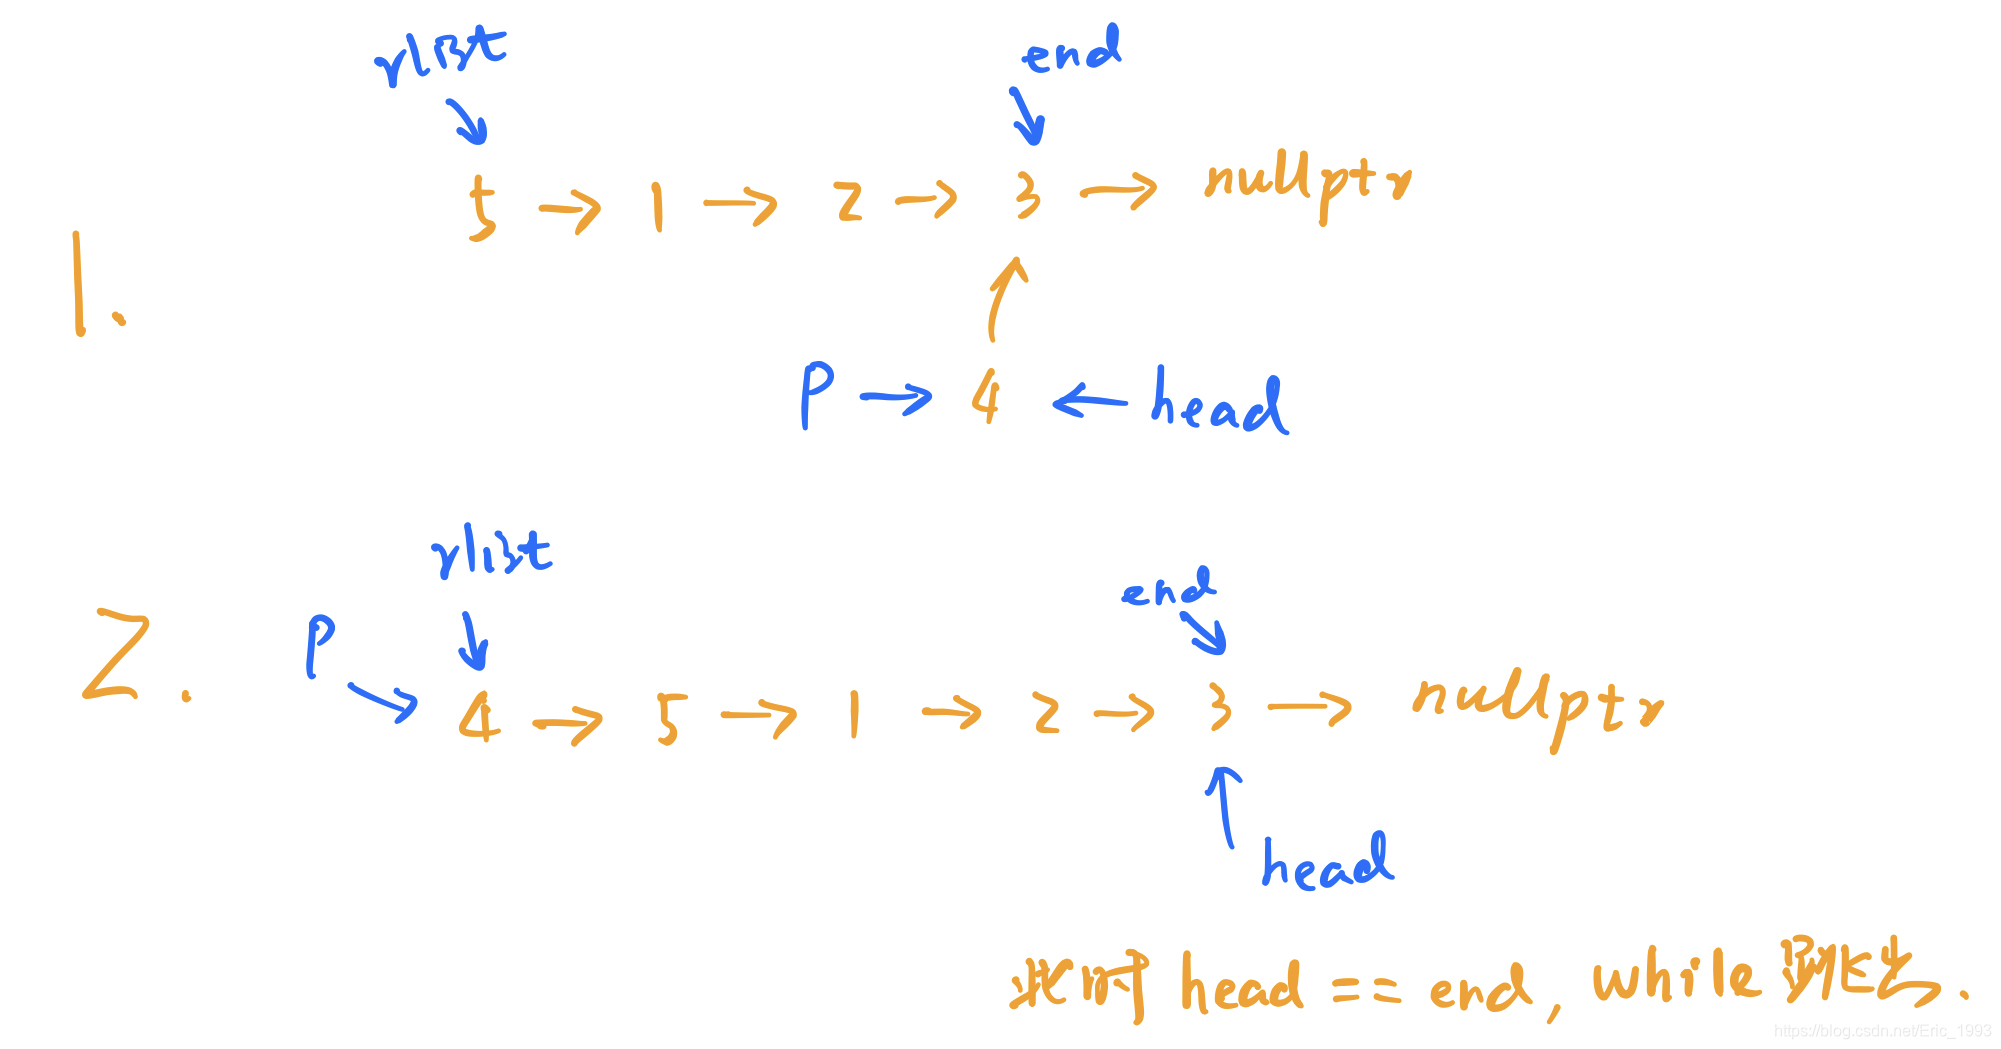 rlist end
5 → 1 → 2 → 3 → nullptr
1.
P → 4 ← head
rlist
end
2. P
4 → 5 → 1 → 2 → 3 → nullptr
head
此时 head == end, while 跳出.
https://blog.csdn.net/Eric_1993